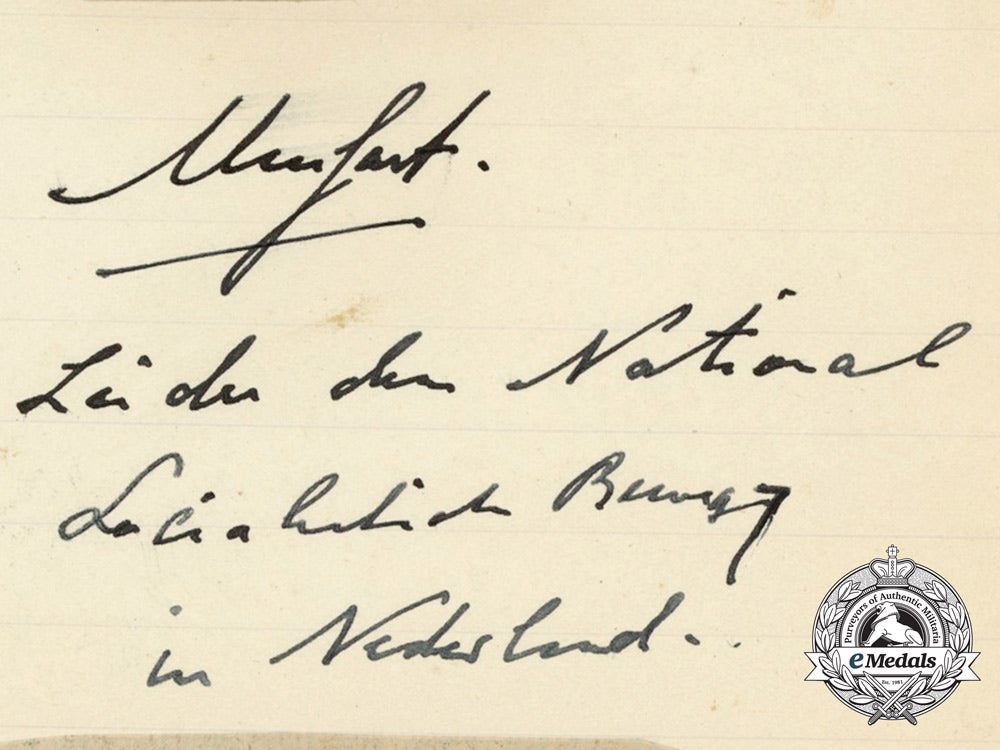 Mussert.
Leider der National
Socialistische Beweg
in Nederland.
Purveyors of Authentic Militaria
eMedals
Est. 1981